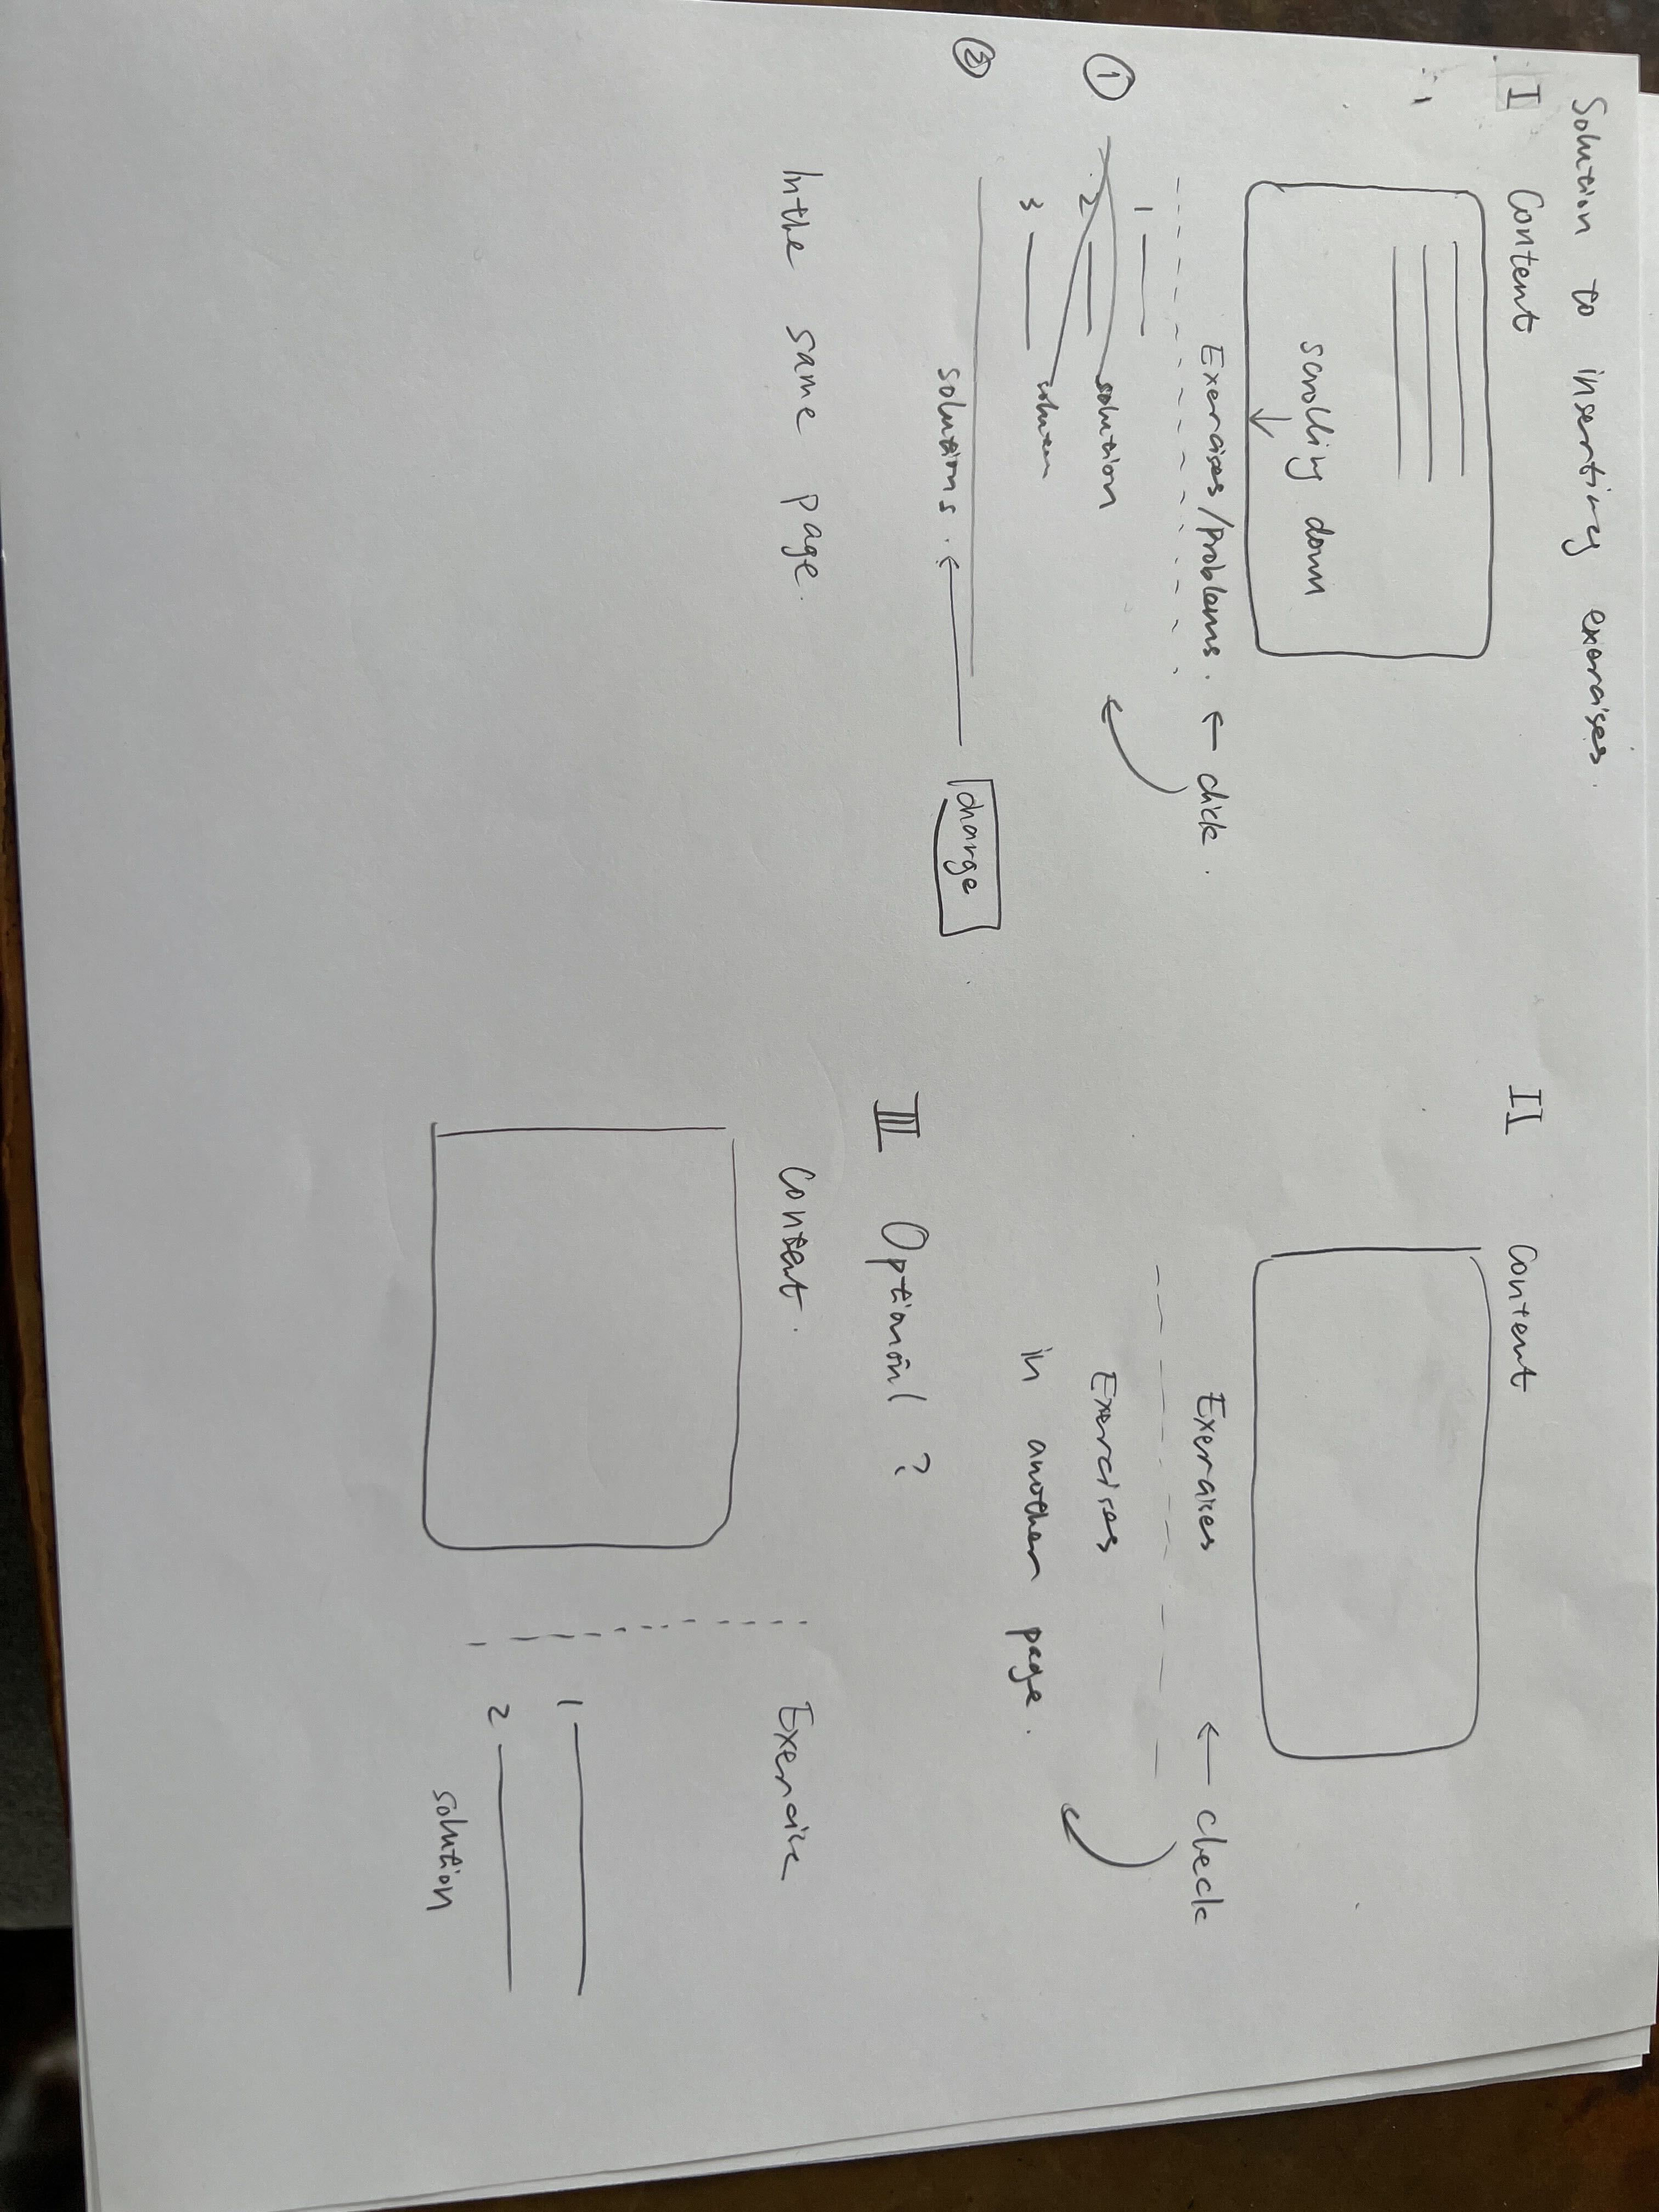 Solution to inserting exercises.
I Content
scrolling down
Exercises/problems. ← click.
1
① 2 solution
3 solution
②
solutions. ← charge
In the same page.
II Content
Exercises ← check
Exercises
in another page.
III Optional ?
Content. Exercise
1
2
solution